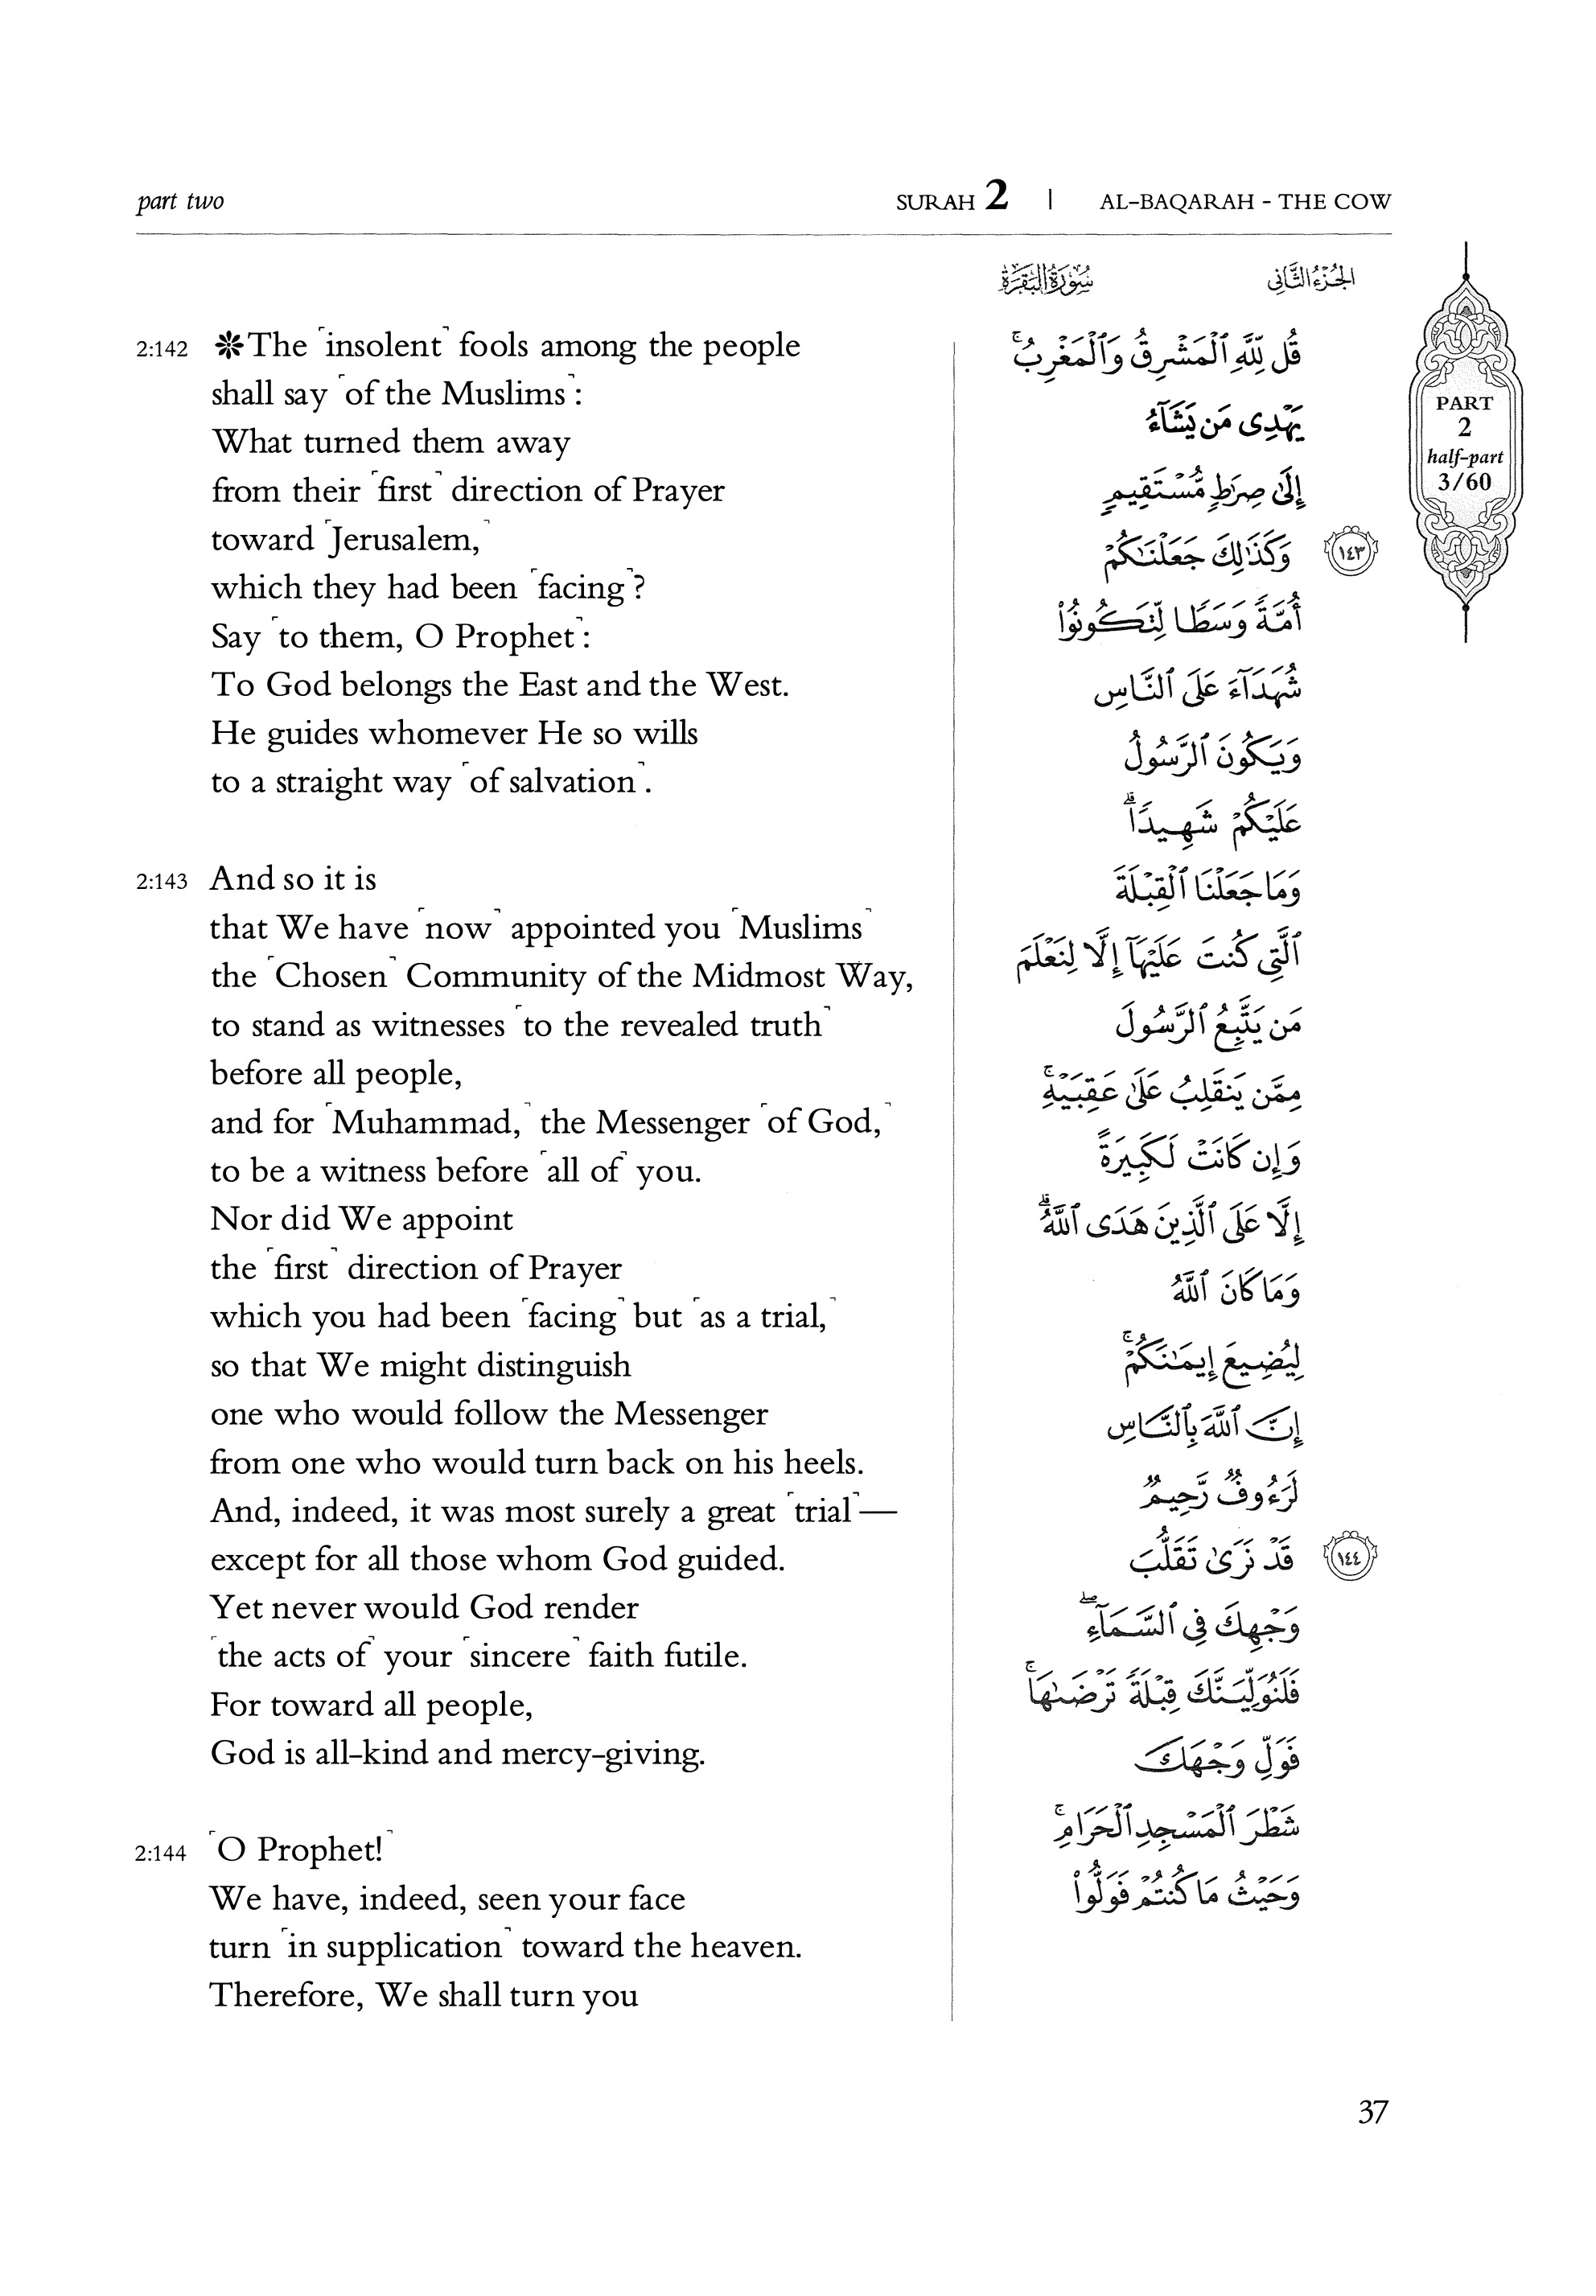 part two
SURAH 2 | AL-BAQARAH - THE COW
سُورَةُ البَقَرَة
الجُزْءُ الثَّانِى
2:142 ❇The ⌜insolent⌝ fools among the people
shall say ⌜of the Muslims⌝:
What turned them away
from their ⌜first⌝ direction of Prayer
toward ⌜Jerusalem,⌝
which they had been ⌜facing⌝?
Say ⌜to them, O Prophet⌝:
To God belongs the East and the West.
He guides whomever He so wills
to a straight way ⌜of salvation⌝.
2:143 And so it is
that We have ⌜now⌝ appointed you ⌜Muslims⌝
the ⌜Chosen⌝ Community of the Midmost Way,
to stand as witnesses ⌜to the revealed truth⌝
before all people,
and for ⌜Muhammad,⌝ the Messenger ⌜of God,⌝
to be a witness before ⌜all of⌝ you.
Nor did We appoint
the ⌜first⌝ direction of Prayer
which you had been ⌜facing⌝ but ⌜as a trial,⌝
so that We might distinguish
one who would follow the Messenger
from one who would turn back on his heels.
And, indeed, it was most surely a great ⌜trial⌝—
except for all those whom God guided.
Yet never would God render
⌜the acts of⌝ your ⌜sincere⌝ faith futile.
For toward all people,
God is all-kind and mercy-giving.
2:144 ⌜O Prophet!⌝
We have, indeed, seen your face
turn ⌜in supplication⌝ toward the heaven.
Therefore, We shall turn you
قُل لِّلَّهِ ٱلْمَشْرِقُ وَٱلْمَغْرِبُ ۚ
يَهْدِى مَن يَشَآءُ
إِلَىٰ صِرَٰطٍ مُّسْتَقِيمٍ
١٤٣ وَكَذَٰلِكَ جَعَلْنَٰكُمْ
أُمَّةً وَسَطًا لِّتَكُونُوا۟
شُهَدَآءَ عَلَى ٱلنَّاسِ
وَيَكُونَ ٱلرَّسُولُ
عَلَيْكُمْ شَهِيدًا ۗ
وَمَا جَعَلْنَا ٱلْقِبْلَةَ
ٱلَّتِى كُنتَ عَلَيْهَآ إِلَّا لِنَعْلَمَ
مَن يَتَّبِعُ ٱلرَّسُولَ
مِمَّن يَنقَلِبُ عَلَىٰ عَقِبَيْهِ ۚ
وَإِن كَانَتْ لَكَبِيرَةً
إِلَّا عَلَى ٱلَّذِينَ هَدَى ٱللَّهُ ۗ
وَمَا كَانَ ٱللَّهُ
لِيُضِيعَ إِيمَٰنَكُمْ ۚ
إِنَّ ٱللَّهَ بِٱلنَّاسِ
لَرَءُوفٌ رَّحِيمٌ
١٤٤ قَدْ نَرَىٰ تَقَلُّبَ
وَجْهِكَ فِى ٱلسَّمَآءِ ۖ
فَلَنُوَلِّيَنَّكَ قِبْلَةً تَرْضَىٰهَا ۚ
فَوَلِّ وَجْهَكَ
شَطْرَ ٱلْمَسْجِدِ ٱلْحَرَامِ ۚ
وَحَيْثُ مَا كُنتُمْ فَوَلُّوا۟
PART
2
half-part
3/60
37